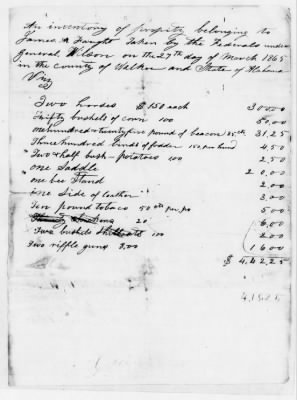 An inventory of property belonging to
James A Faught Taken by the Federals under
General Wilson on the 27th day of March 1865
in the county of Walker and State of Alabama
Viz
Two horses $150 each 30000
Thifty bushels of corn 100 5000
one hundred & twenty five pounds of beacon 25cth 31,25
Three hundred binds of fodder 150 per hund 4,50
Two & half bush- potatoes 100 2,50
one Saddle 20,00
one bee Stand 2,00
one Side of leather " 3,00
Ten pound tobaco 50cts per po 5,00
chickens 20 6,00
Two bushels 100 2,00
Two riffle guns 8,00 16,00
$ 442,25